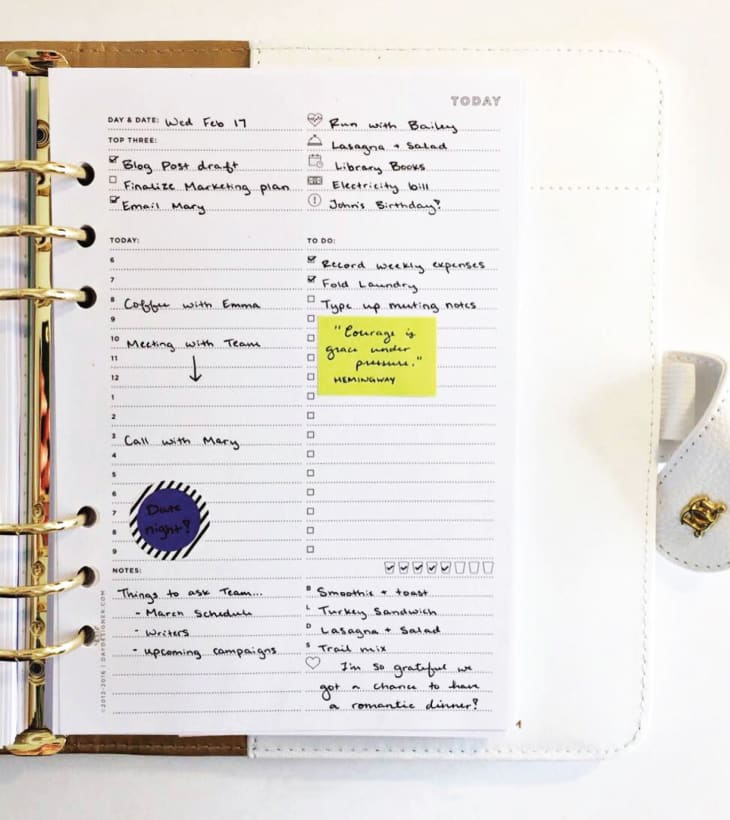 TODAY
DAY & DATE: Wed Feb 17
TOP THREE:
Blog Post draft
Finalize Marketing plan
Email Mary
Run with Bailey
Lasagna + Salad
Library Books
Electricity bill
John's Birthday!
TODAY:
6
7
8 Coffee with Emma
9
10 Meeting with Team
11
12
1
2
3 Call with Mary
4
5
6
7
8
9
Date
night!
TO DO:
Record weekly expenses
Fold Laundry
Type up meeting notes
"Courage is
grace under
pressure."
HEMINGWAY
NOTES:
Things to ask Team...
- March Schedule
- Writers
- upcoming campaigns
B Smoothie + toast
L Turkey Sandwich
D Lasagna + Salad
S Trail mix
I'm so grateful we
got a chance to have
a romantic dinner!
©2012-2016 | DAYDESIGNER.COM